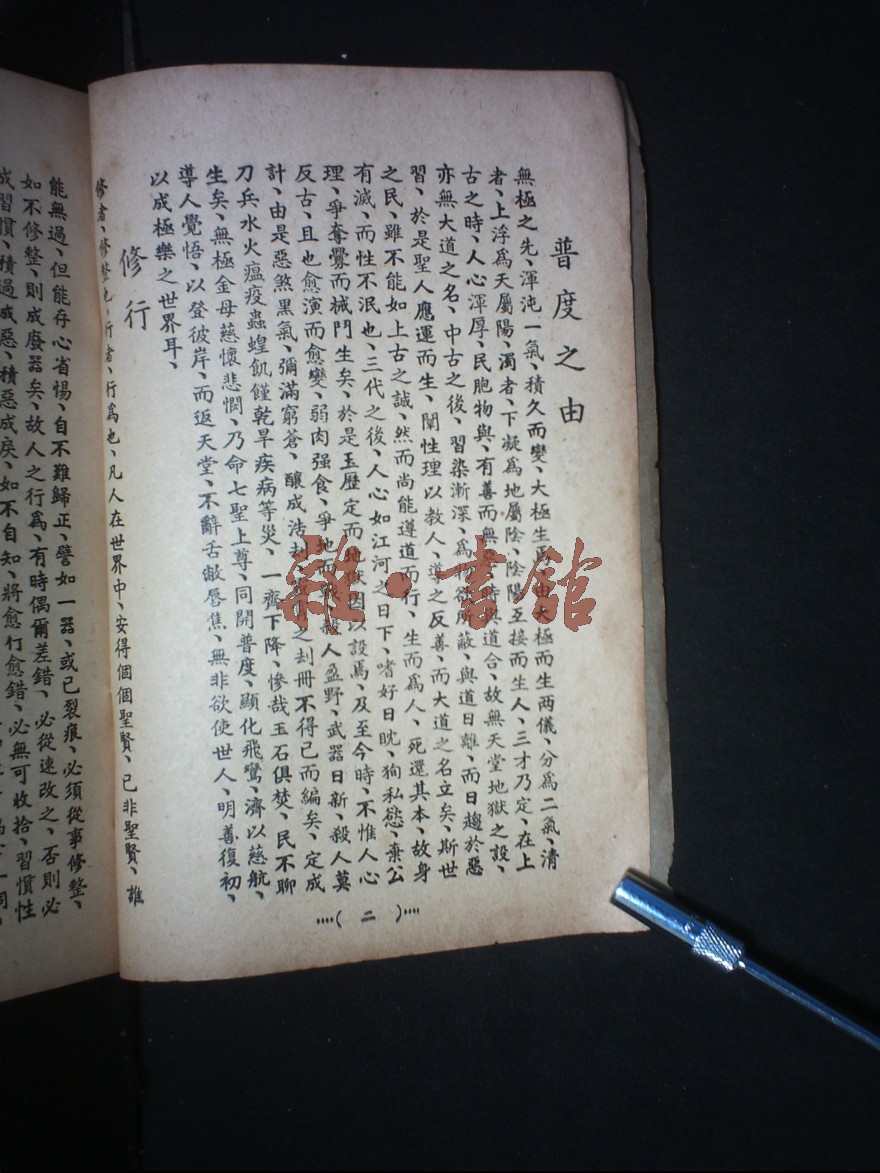 普度之由
無極之先、渾沌一氣、積久而變、大極生焉、由大極而生两儀、分爲二氣、清
者、上浮爲天屬陽、濁者、下凝爲地屬陰、陰陽互接而生人、三才乃定、在上
古之時、人心渾厚、民胞物與、有善而無惡、時與道合、故無天堂地獄之設、
亦無大道之名、中古之後、習染漸深、爲物欲所蔽、與道日離、而日趨於惡
習、於是聖人應運而生、闡性理以教人、導之反善、而大道之名立矣、斯世
之民、雖不能如上古之誠、然而尚能遵道而行、生而爲人、死還其本、故身
有滅、而性不泯也、三代之後、人心如江河之日下、嗜好日眈、狥私慾、棄公
理、爭奪釁而械鬥生矣、於是玉歷定而地獄因以設焉、及至今時、不惟人心
反古、且也愈演而愈變、弱肉强食、爭地而戰、殺人盈野、武器日新、殺人莫
計、由是惡煞黑氣、彌滿窮蒼、釀成浩劫、之刦冊不得已而編矣、定成
刀兵水火瘟疫蟲蝗飢饉乾旱疾病等災、一齊下降、慘哉玉石俱焚、民不聊
生矣、無極金母慈懷悲憫、乃命七聖上尊、同開普度、顯化飛鸞、濟以慈航、
導人覺悟、以登彼岸、而返天堂、不辭舌敝唇焦、無非欲使世人、明善復初、
以成極樂之世界耳、
修行
修者、修整也、行者、行爲也、凡人在世界中、安得個個聖賢、已非聖賢、誰
(二)
能無過、但能存心省惕、自不難歸正、譬如一器、或已裂痕、必須從事修整、
如不修整、則成廢器矣、故人之行爲、有時偶爾差錯、必從速改之、否則必
成習慣、積過成惡、積惡成戾、如不自知、將愈行愈錯、必無可收拾、習慣性
雜·書館